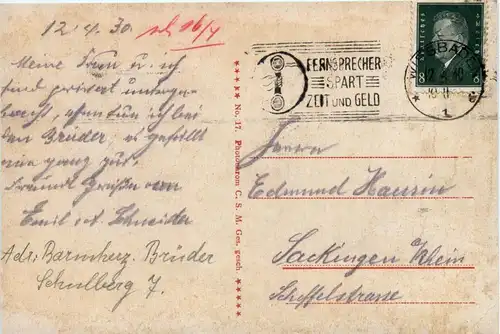 12.4.30.
16/4
Meine Frau u. ich
sind privat unterge-
bracht, ich bei
den Brüder; es gefällt
mir ganz gut.
Freund Grüßen von
Emil Schneider
Adr: Barmherz. Brüder
Schulberg 7.
***** No. 17. Photochrom C. S. M. Ges. gesch. *****
FERNSPRECHER
SPART
ZEIT UND GELD
WIESBADEN
1
8 8
Herrn
Edmund
Säckingen a/Rhein
Scheffelstrasse